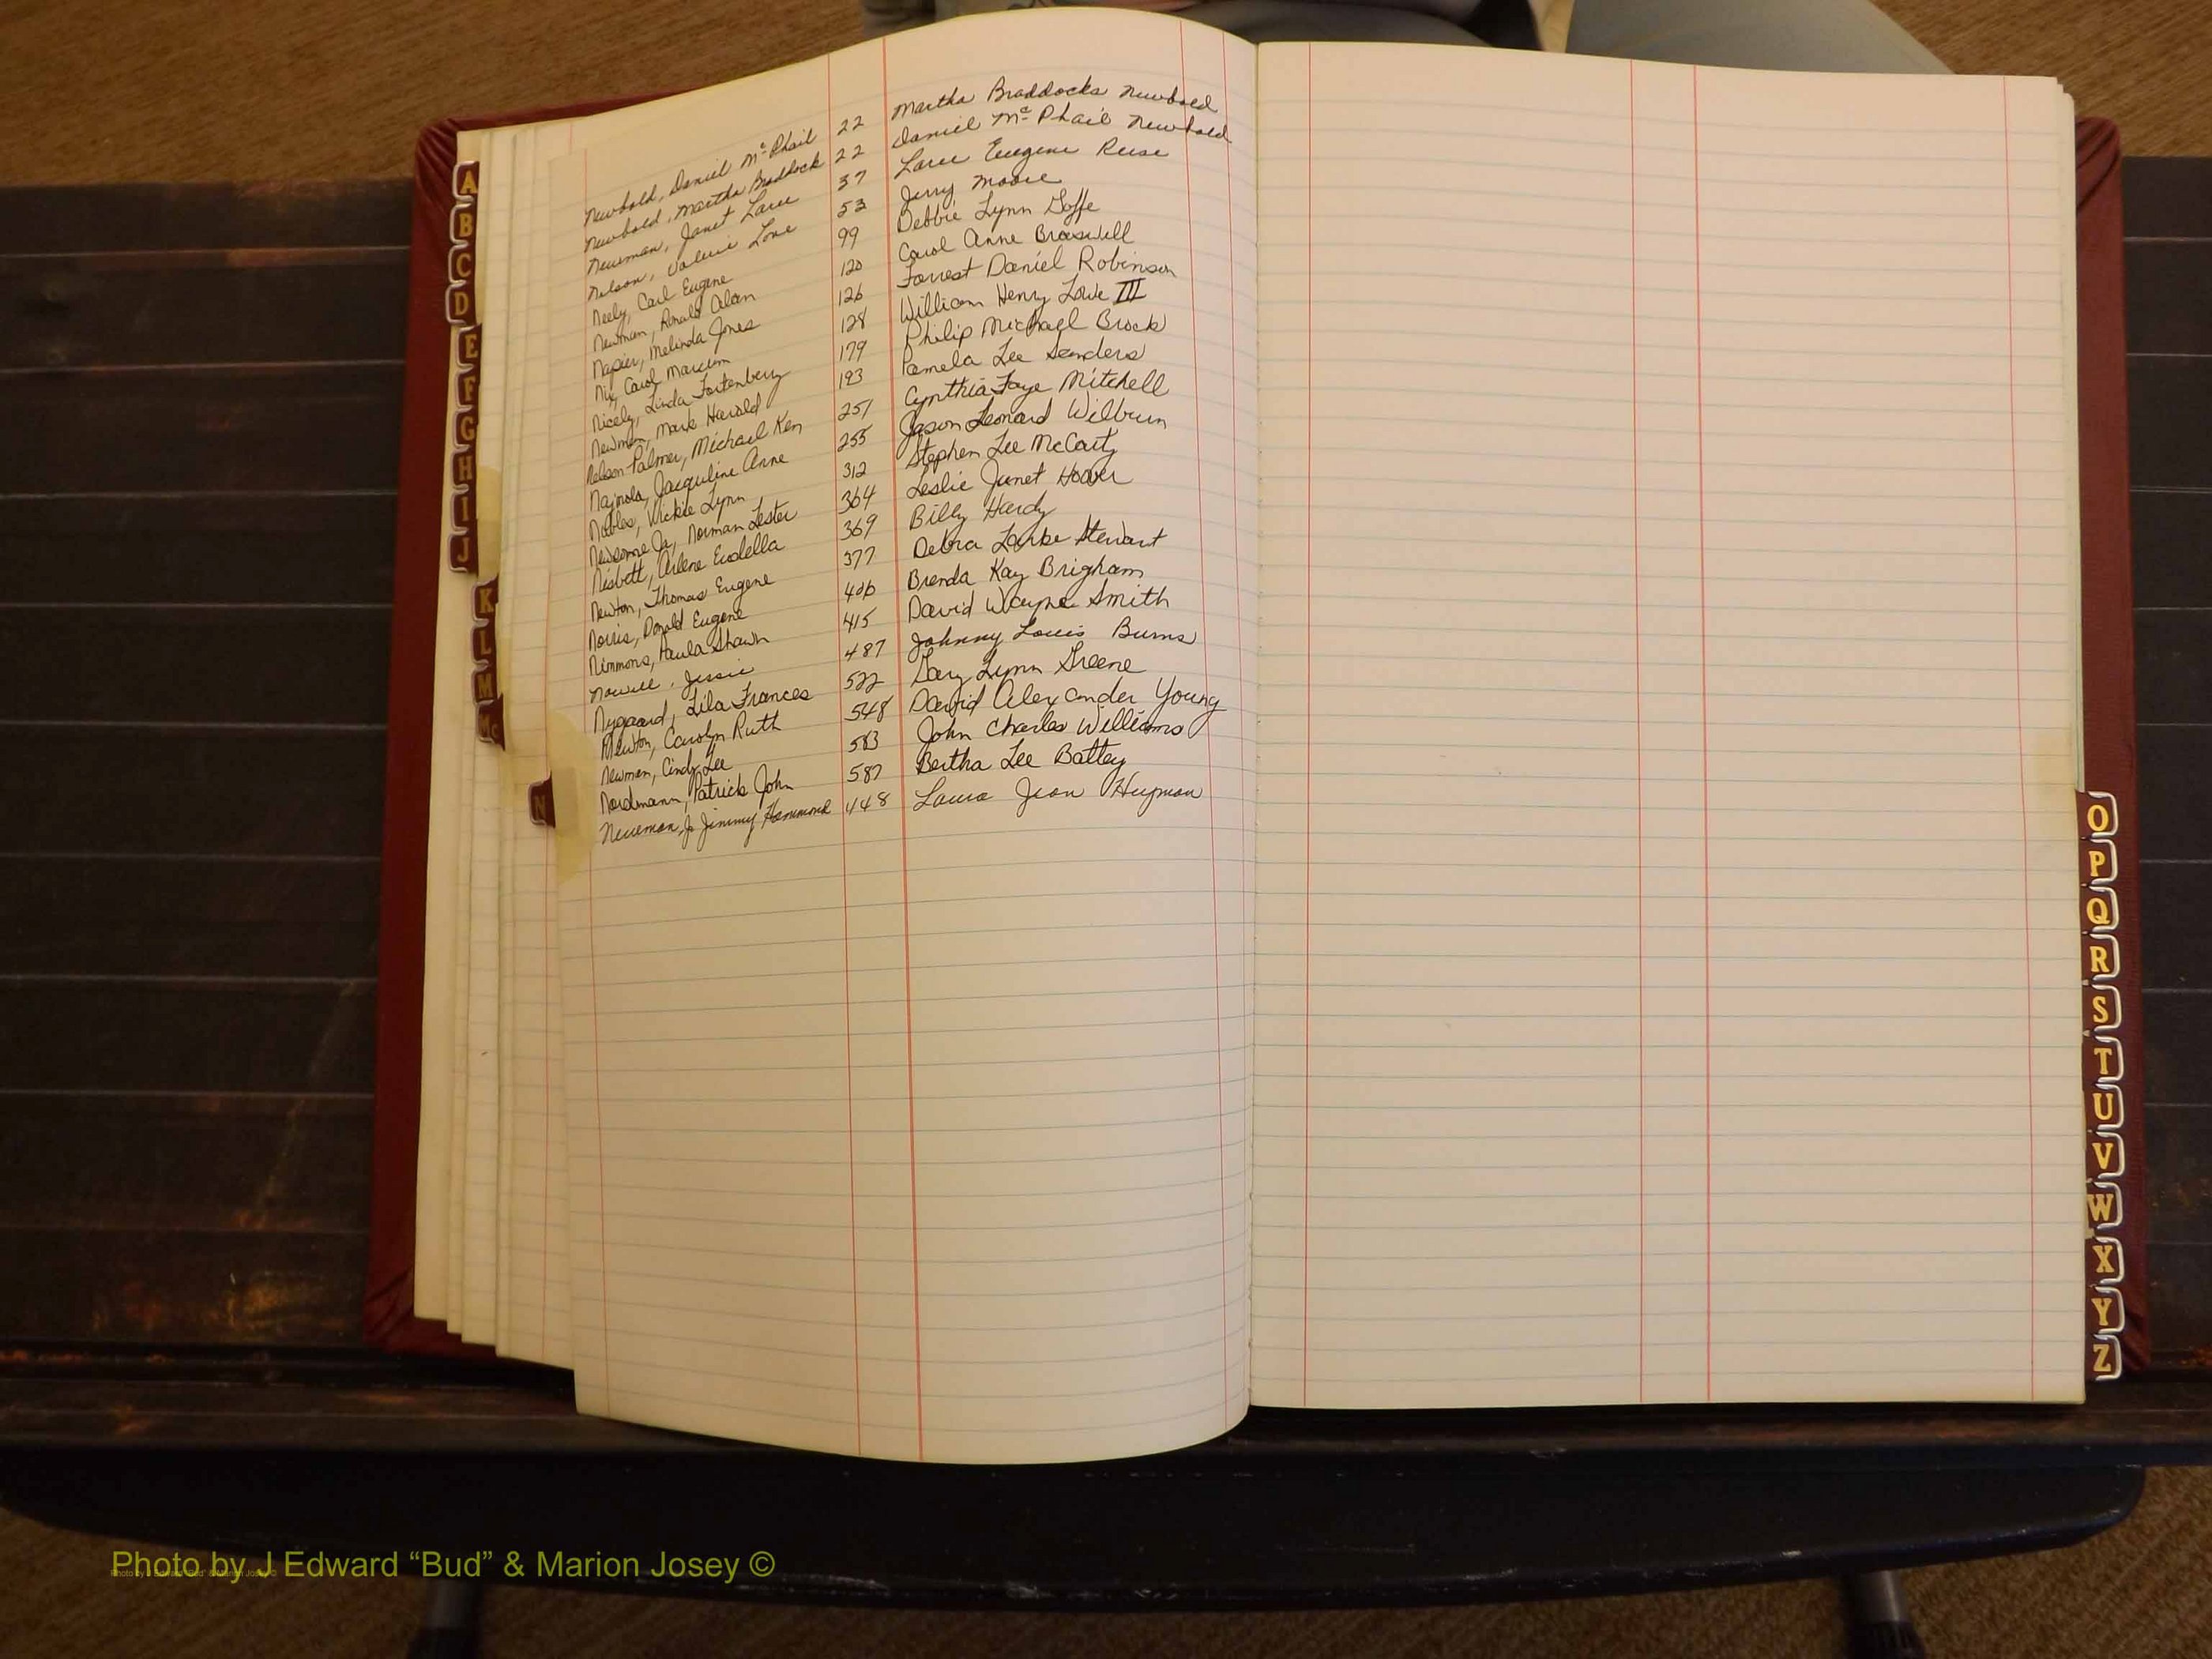 Newbold, Daniel McPhail 22 Martha Braddocks Newbold
Newbold, Martha Braddock 22 Daniel McPhail Newbold
Newman, Janet Larue 37 Larue Eugene Reese
Nelson, Valerie Love 53 Jerry Moore
Neely, Carl Eugene 99 Debbie Lynn Goffe
Newman, Ronald Alan 120 Carol Anne Braswell
Napier, Melinda Jones 126 Forrest Daniel Robinson
Nix, Carol Marcum 128 William Henry Lowe III
Nicely, Linda Fortenberry 179 Philip Michael Brock
Newman, Mark Harold 193 Pamela Lee Sanders
Nelson Palmer, Michael Ken 251 Cynthia Faye Mitchell
Jacquline Anne 255 Jason Leonard Wilburn
Nobles, Vickie Lynn 312 Stephen Lee McCarty
Newsome Jr, Norman Lester 364 Leslie Janet Hoover
Nisbett, Arlene 369 Billy Hardy
Newton, Thomas Eugene 377 Debra Stewart
Norris, Donald Eugene 406 Brenda Kay Brigham
Nimmons, Paula Shawn 415 David Wayne Smith
Nowell, Jessie 487 Johnny Louis Burns
Nygaard, Lila Frances 522 Gary Lynn Greene
Newton, Carolyn Ruth 548 David Alexander Young
Newman, Cindy Lee 583 John Charles Williams
Nordmann, Patrick John 587 Bertha Lee Battey
Newman, Jr Jimmy Hammond 448 Laura Jean Heyman
A
B
C
D
E
F
G
H
I
J
K
L
M
Mc
N
O
P
Q
R
S
T
U
V
W
X
Y
Z
Photo by J Edward “Bud” & Marion Josey ©